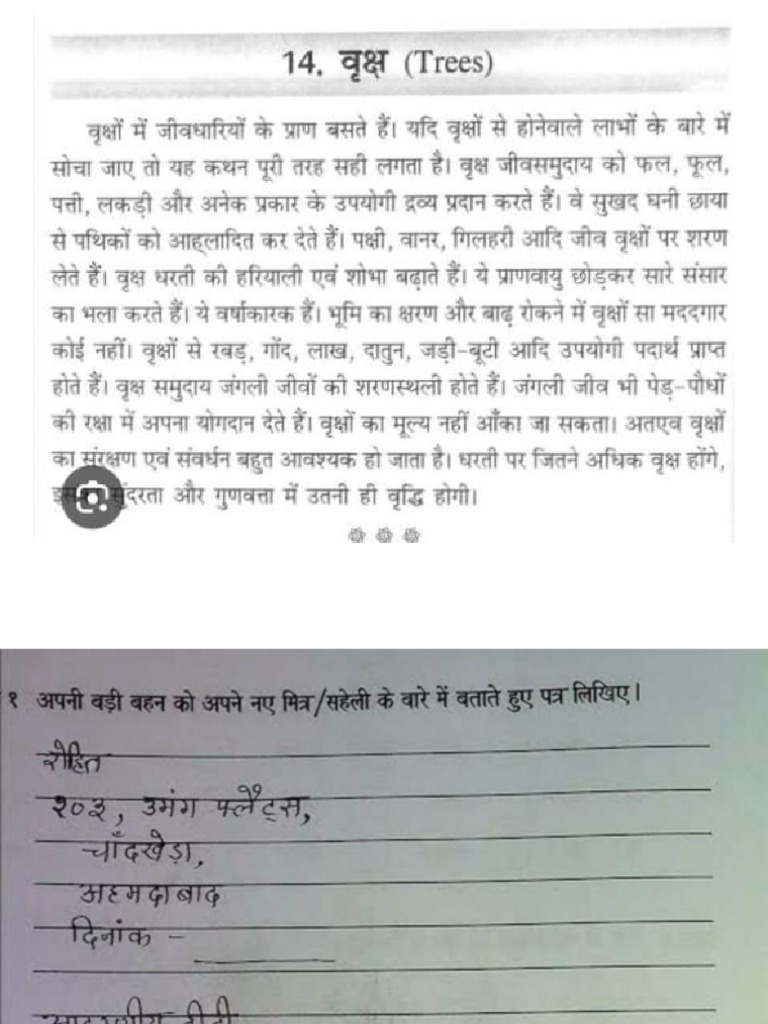 14. वृक्ष (Trees)
वृक्षों में जीवधारियों के प्राण बसते हैं। यदि वृक्षों से होनेवाले लाभों के बारे में
सोचा जाए तो यह कथन पूरी तरह सही लगता है। वृक्ष जीवसमुदाय को फल, फूल,
पत्ती, लकड़ी और अनेक प्रकार के उपयोगी द्रव्य प्रदान करते हैं। वे सुखद घनी छाया
से पथिकों को आह्लादित कर देते हैं। पक्षी, वानर, गिलहरी आदि जीव वृक्षों पर शरण
लेते हैं। वृक्ष धरती की हरियाली एवं शोभा बढ़ाते हैं। ये प्राणवायु छोड़कर सारे संसार
का भला करते हैं। ये वर्षाकारक हैं। भूमि का क्षरण और बाढ़ रोकने में वृक्षों सा मददगार
कोई नहीं। वृक्षों से रबड़, गोंद, लाख, दातुन, जड़ी-बूटी आदि उपयोगी पदार्थ प्राप्त
होते हैं। वृक्ष समुदाय जंगली जीवों की शरणस्थली होते हैं। जंगली जीव भी पेड़-पौधों
की रक्षा में अपना योगदान देते हैं। वृक्षों का मूल्य नहीं आँका जा सकता। अतएव वृक्षों
का संरक्षण एवं संवर्धन बहुत आवश्यक हो जाता है। धरती पर जितने अधिक वृक्ष होंगे,
सुंदरता और गुणवत्ता में उतनी ही वृद्धि होगी।
१ अपनी बड़ी बहन को अपने नए मित्र/सहेली के बारे में बताते हुए पत्र लिखिए।
रोहित
२०३, उमंग फ्लैट्स,
चाँदखेड़ा,
अहमदाबाद
दिनांक -